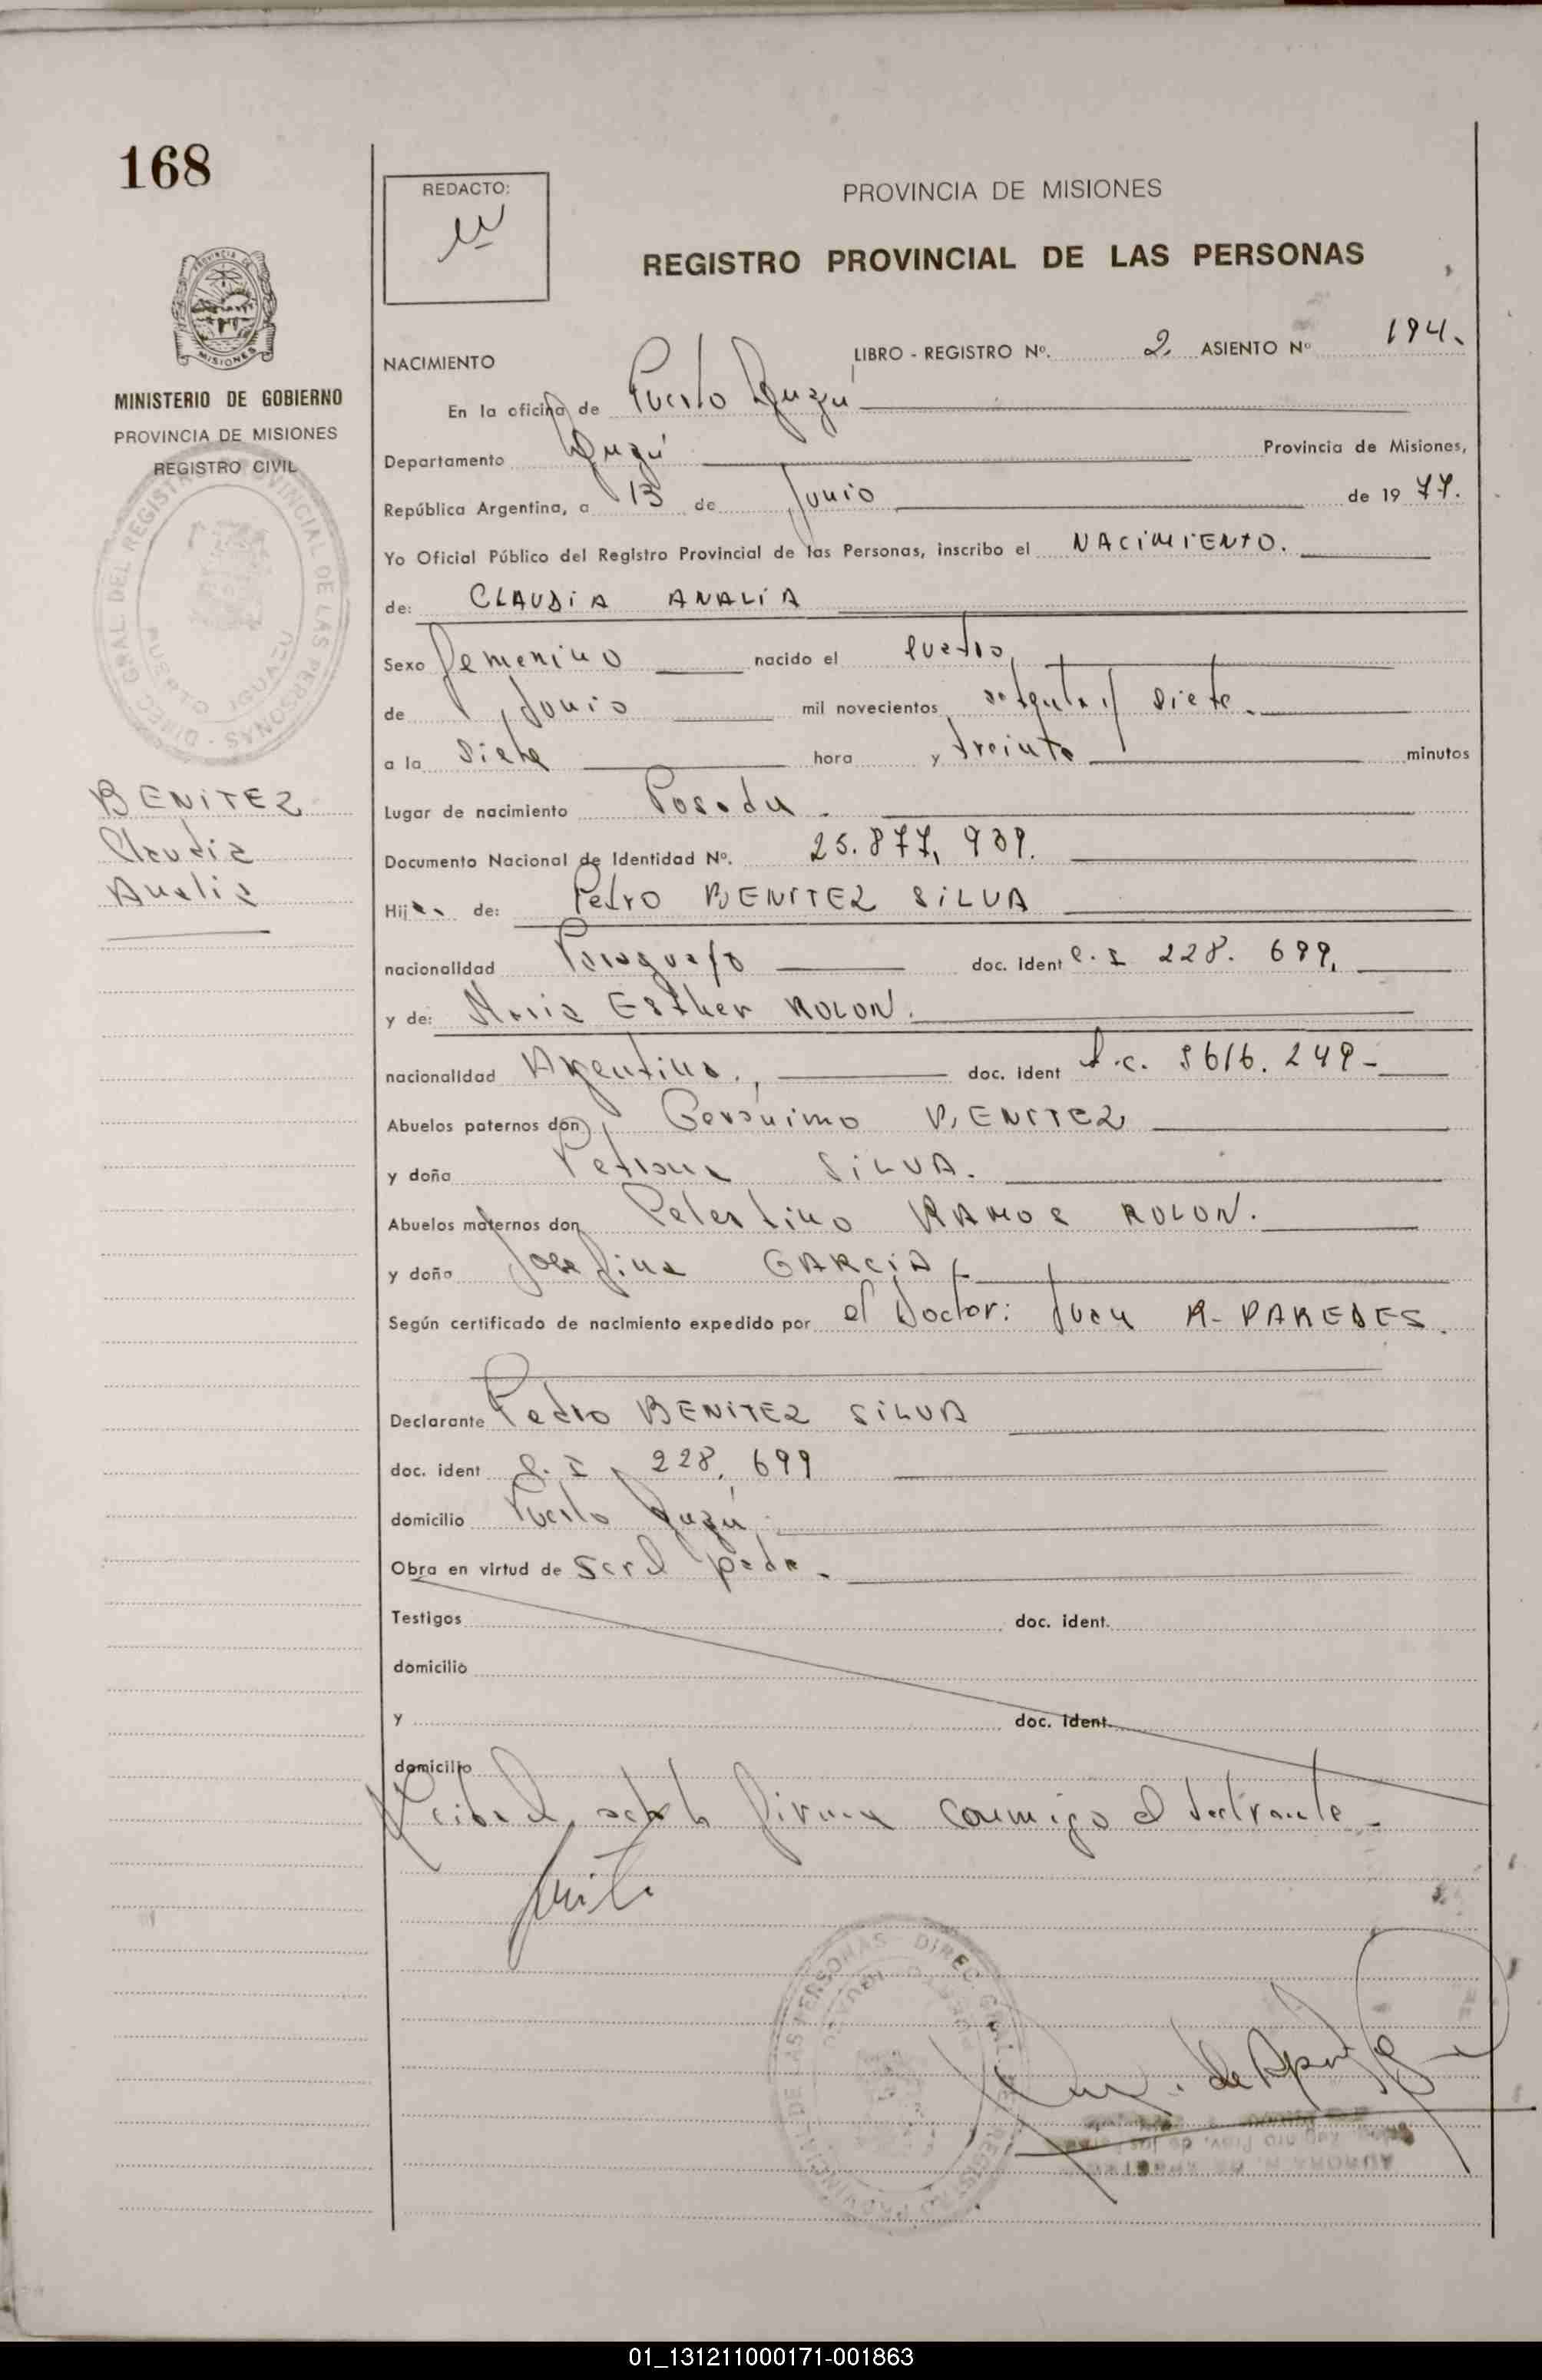 168
REDACTO:
PROVINCIA DE MISIONES
REGISTRO PROVINCIAL DE LAS PERSONAS
NACIMIENTO
LIBRO - REGISTRO Nº. 2. ASIENTO Nº 194.
En la oficina de Puerto Iguazú
Departamento Iguazú Provincia de Misiones,
República Argentina, a 13 de Junio de 19 77.
Yo Oficial Público del Registro Provincial de las Personas, inscribo el NACIMIENTO.
de: CLAUDIA ANALIA
Sexo Femenino nacido el cuatro
de Junio mil novecientos setenta y siete.
a la siete hora y treinta minutos
Lugar de nacimiento Posadas.
Documento Nacional de Identidad Nº. 25.877.939.
Hija de: Pedro BENITEZ SILVA
nacionalidad Paraguayo doc. Ident C. I 228. 699.
y de: Maria Esther ROLON.
nacionalidad Argentina. doc. Ident 249-
Abuelos paternos don Gerónimo BENITEZ
y doña Petrona SILVA.
Abuelos maternos don Celestino RAMOS ROLON.
y doña Josefina GARCIA
Según certificado de nacimiento expedido por el Doctor: Juan R. PAREDES.
Declarante Pedro BENITEZ SILVA
doc. ident C. I 228. 699
domicilio Puerto Iguazú
Obra en virtud de ser el padre.
Testigos doc. ident.
domicilio
y doc. ident.
domicilio
Leida el acta la firma conmigo el declarante-
MISIONES
MINISTERIO DE GOBIERNO
PROVINCIA DE MISIONES
REGISTRO CIVIL
DIREC. GRAL. DEL REGISTRO PROVINCIAL DE LAS PERSONAS
PUERTO IGUAZU
BENITEZ
Claudia
Analia
DIREC. GRAL. DEL REGISTRO PROVINCIAL DE LAS PERSONAS
PUERTO IGUAZU
01_131211000171-001863